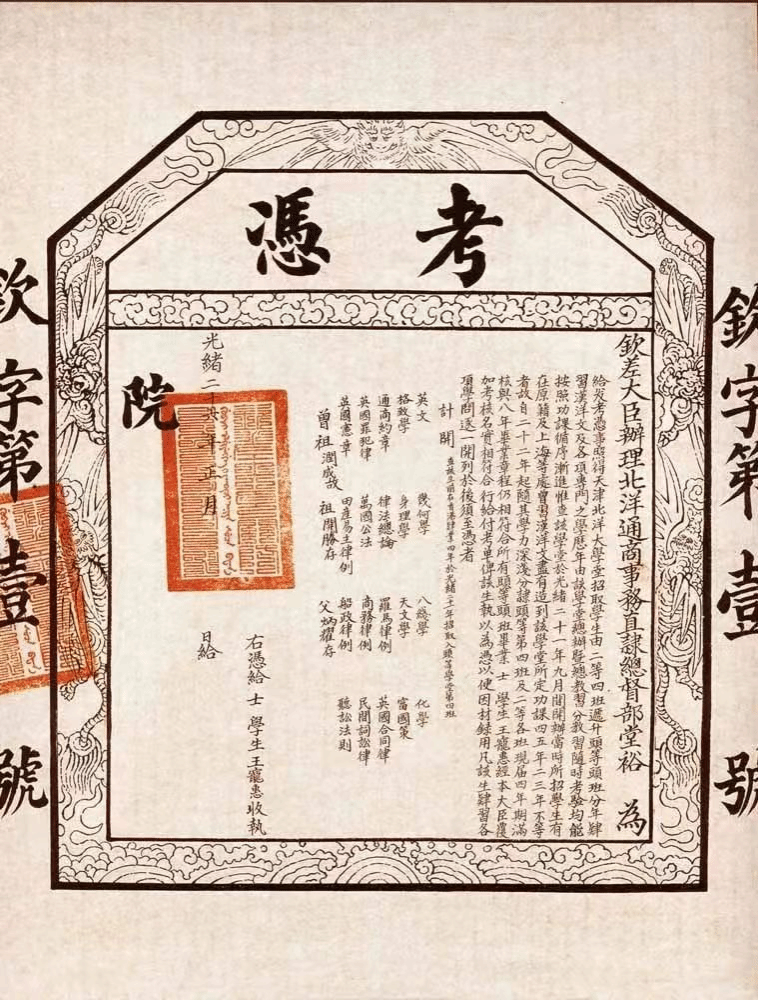 考憑
欽字第壹號
欽差大臣辦理北洋通商事務直隸總督部堂裕 為
給發考憑事照得天津北洋大學堂招取學生由二等四班遞升頭等頭班分年肄
習漢洋文及各項專門之學歷年由該學堂總辦暨總教習分教習隨時考驗均能
按照功課循序漸進惟查該學堂於光緒二十一年九月間開辦當時所招學生有
在原籍及上海等處曾習漢洋文盡有造到該學堂所定功課四五年二三年不等
者故自二十二年起隨其學力深淺分隸頭等第四班及二等各班現屆四年期滿
核與八年畢業章程仍相符合所有頭等頭班畢業士 學生王寵惠經本大臣覆
加考核名實相符合行給付考單俾該生執以為憑以便因材錄用凡該生肄習各
項學問逐一開列於後須至憑者
計開
英文 幾何學 八線學 化學
格致學 身理學 天文學 富國策
通商約章 律法總論 羅馬律例 英國合同律
英國罪犯律 萬國公法 商務律例 民間詞訟律
英國憲章 田產易主律例 船政律例 聽訟法則
曾祖潤成故 祖開勝存 父炳耀存
右憑給 士 學生王寵惠收執
光緒二十六年正月 日給
院
欽字第壹號